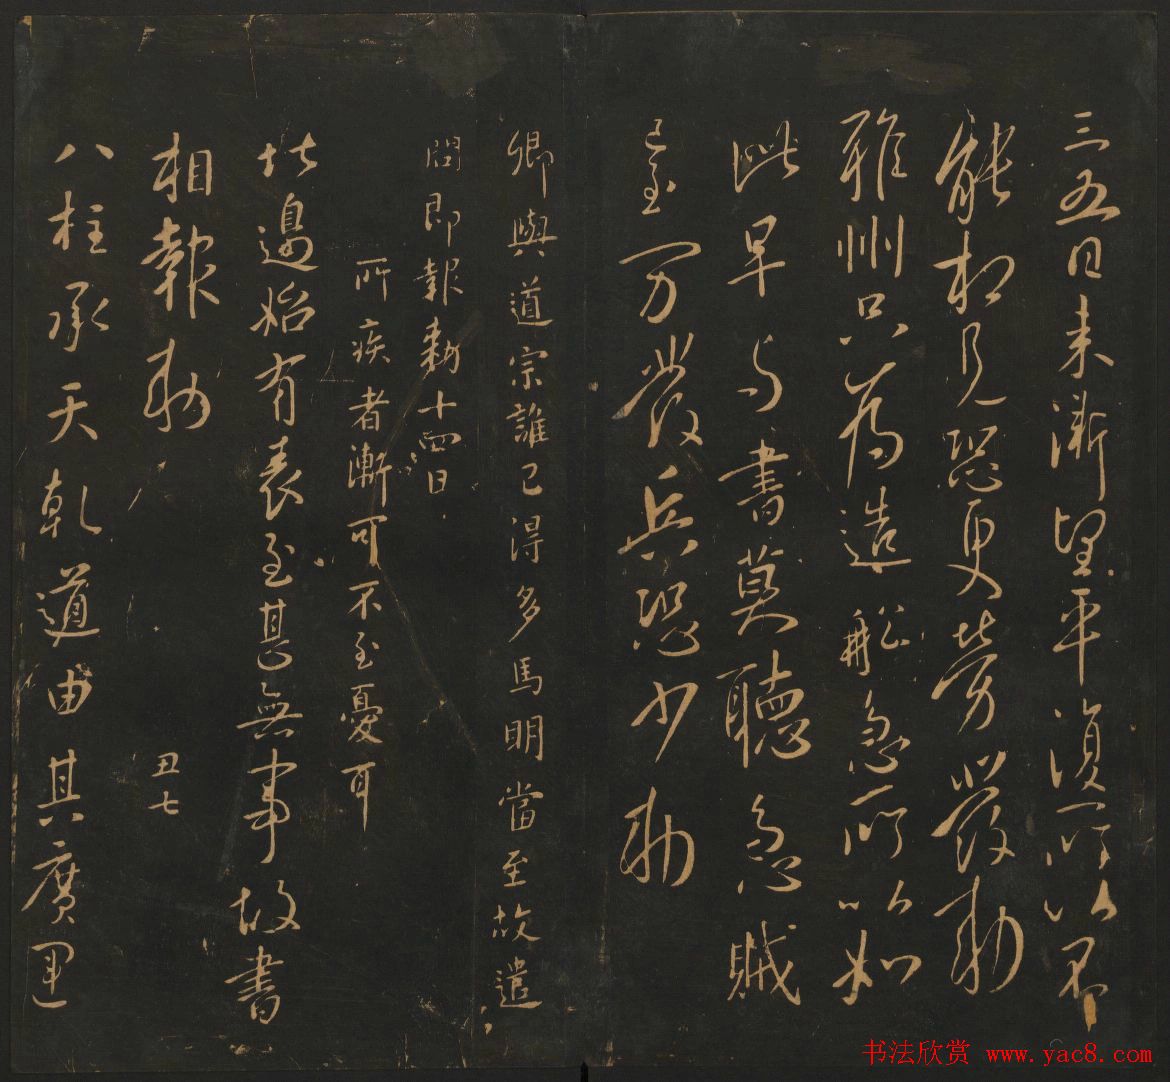 三五日来漸望平復所以不
能相見恐更勞發勅
雅州只為造船急所以如
此早与書莫聽急賊
已至万發兵恐少勅
卿與道宗誰已得多馬明當至故遣
問即報勅十四日
所疾者漸可不至憂耳
北邊始有表至甚無事故書
相報勅
丑七
八柱承天乾道由其廣運
书法欣赏 www.yac8.com